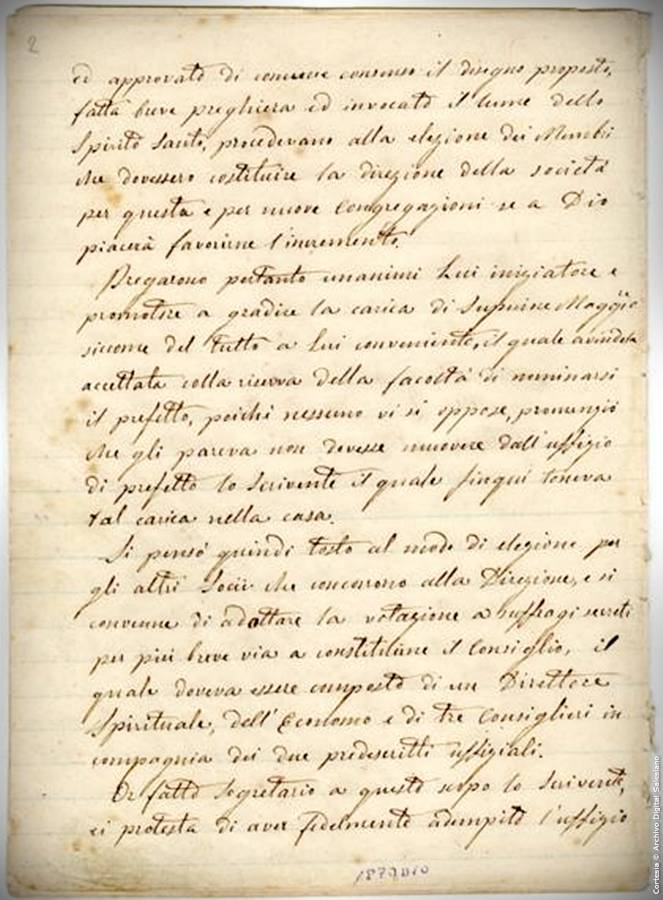 2
ed approvato di comune consenso il disegno proposto,
fatta breve preghiera ed invocato il lume dello
Spirito Santo, procedevano alla elezione dei Membri
che dovessero costituire la direzione della società
per questa e per nuove Congregazioni se a Dio
piacerà favorirne l'incremento.
Pregarono pertanto unanimi Lui iniziatore e
promotore a gradire la carica di Superiore Maggiore
siccome del tutto a Lui conveniente, il quale avendola
accettata colla riserva della facoltà di nominarsi
il prefetto, poiché nessuno vi si oppose, pronunziò
che gli pareva non dovesse muovere dall'uffizio
di prefetto lo Scrivente il quale fin qui teneva
tal carica nella casa.
Si pensò quindi tosto al modo di elezione per
gli altri Socii che concorrono alla Direzione, e si
convenne di adottare la votazione a suffragi secreti
per più breve via a costituirne il Consiglio, il
quale doveva essere composto di un Direttore
Spirituale, dell'Economo e di tre Consiglieri in
compagnia dei due predescritti uffiziali.
Or fatto Segretario a questo scopo lo Scrivente,
ei protesta di aver fedelmente adempito l'uffizio
Cortesia © Archivo Digital Salesiano